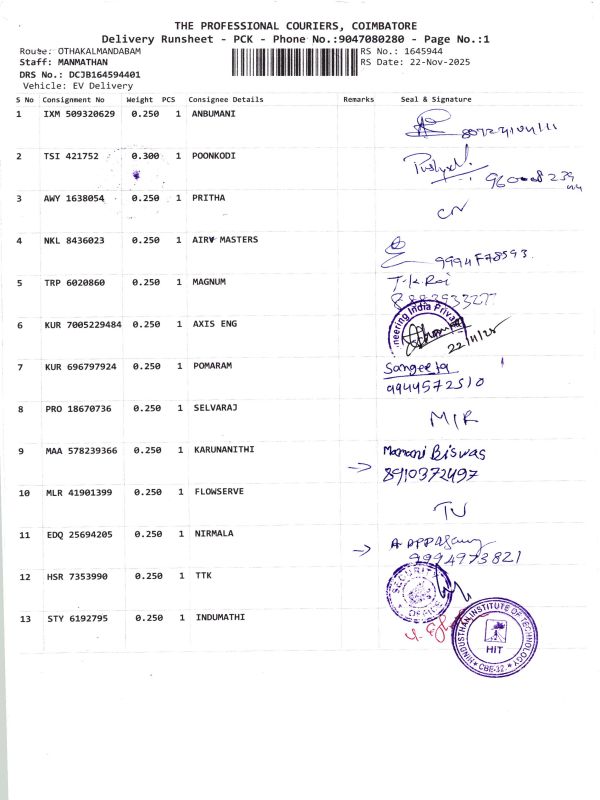 THE PROFESSIONAL COURIERS, COIMBATORE
Delivery Runsheet - PCK - Phone No.:9047080280 - Page No.:1
Route: OTHAKALMANDABAM RS No.: 1645944
Staff: MANMATHAN RS Date: 22-Nov-2025
DRS No.: DCJB164594401
Vehicle: EV Delivery
S No Consignment No Weight PCS Consignee Details Remarks Seal & Signature
1 IXM 509320629 0.250 1 ANBUMANI
2 TSI 421752 0.300 1 POONKODI
3 AWY 1638054 0.250 1 PRITHA
4 NKL 8436023 0.250 1 AIRV MASTERS
5 TRP 6020860 0.250 1 MAGNUM T.K.Rai
6 KUR 7005229484 0.250 1 AXIS ENG neering India Priva
22/11/25
7 KUR 696797924 0.250 1 POMARAM Sangeeta
9944572510
8 PRO 18670736 0.250 1 SELVARAJ
9 MAA 578239366 0.250 1 KARUNANITHI Mamani Biswas
8910372497
10 MLR 41901399 0.250 1 FLOWSERVE
11 EDQ 25694205 0.250 1 NIRMALA
9994973821
12 HSR 7353990 0.250 1 TTK SECURITY OFFICE
13 STY 6192795 0.250 1 INDUMATHI
HINDUSTHAN INSTITUTE OF TECHNOLOGY
HIT
CBE-32